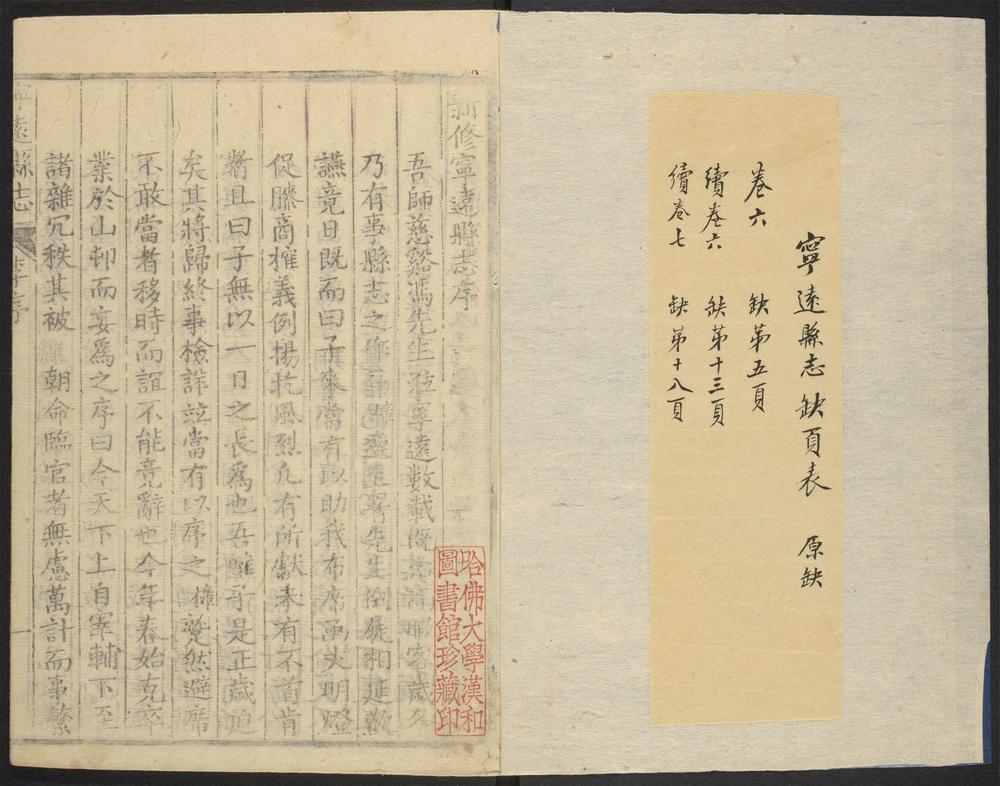 寧遠縣志缺頁表 原缺
卷六 缺第五頁
續卷六 缺第十三頁
續卷七 缺第十八頁
新修寧遠縣志序
吾師慈谿馮先生蒞寧遠數載既
乃有事縣志之作 先生倒屣相延歡
讌竟日既而曰子來當有以助我布席 明燈
促膝商搉義例揚扢風烈凡有所獻未有不首肯
者且曰子無以一日之長爲也吾 子是正歲
矣其將歸終事檢詳竝當有以序之 權 然避席
不敢當者移時而誼不能竟辭也今年春始克卒
業於山邨而妄爲之序曰今天下上自宰輔下至
諸雜冗秩其被 朝命臨官者無慮萬計而事繁
寧遠縣志 序 一
哈佛大學漢和
圖書館珍藏印